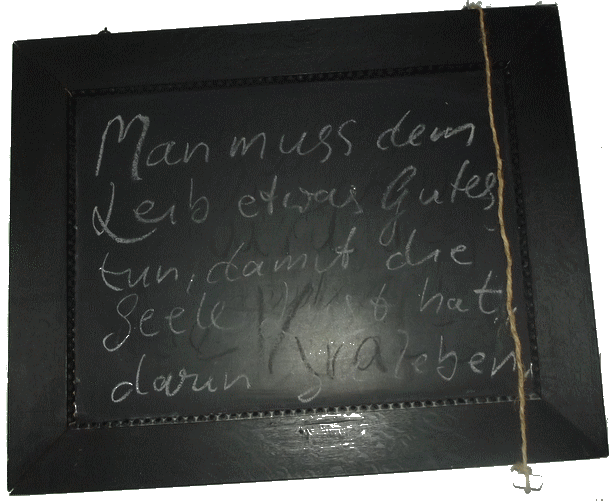 Man muss dem
Leib etwas Gutes
tun, damit die
Seele Lust hat,
darin zu leben.